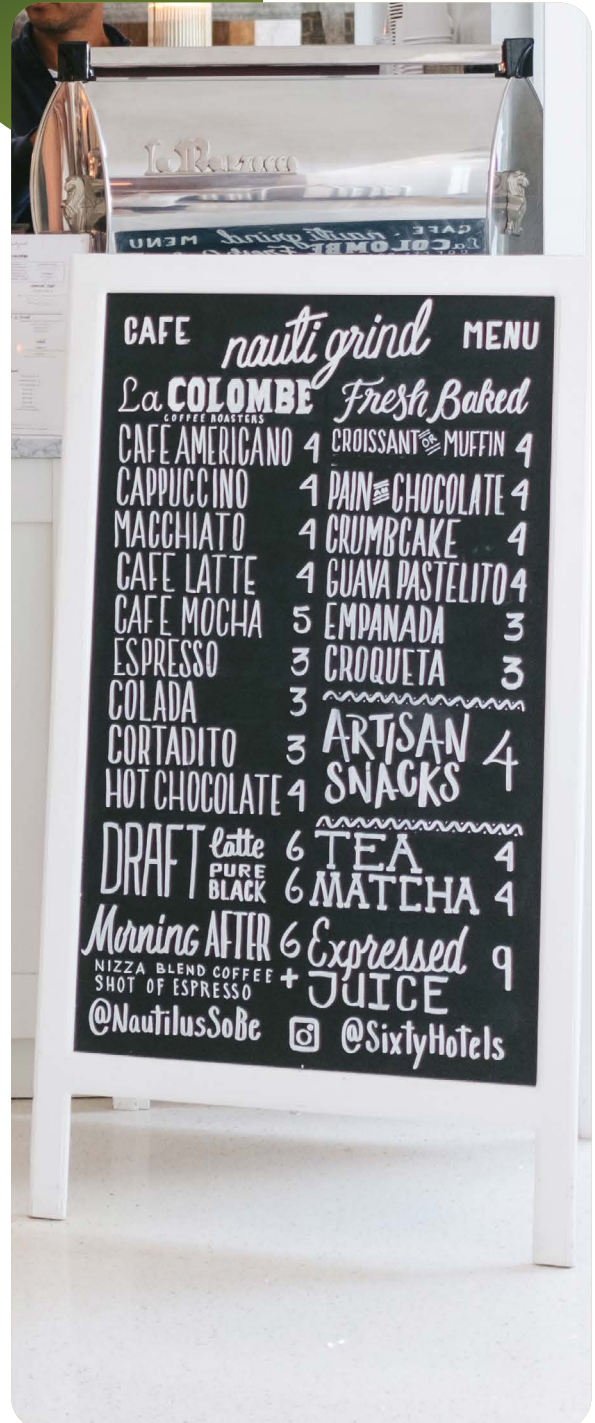 CAFE nauti grind MENU
La COLOMBE
COFFEE ROASTERS
CAFE AMERICANO 4
CAPPUCCINO 4
MACCHIATO 4
CAFE LATTE 4
CAFE MOCHA 5
ESPRESSO 3
COLADA 3
CORTADITO 3
HOT CHOCOLATE 4
DRAFT latte 6
PURE BLACK 6
Morning AFTER 6
NIZZA BLEND COFFEE +
SHOT OF ESPRESSO
Fresh Baked
CROISSANT OR MUFFIN 4
PAIN AU CHOCOLATE 4
CRUMBCAKE 4
GUAVA PASTELITO 4
EMPANADA 3
CROQUETA 3
ARTISAN SNACKS 4
TEA 4
MATCHA 4
Expressed JUICE 9
@NautilusSoBe @SixtyHotels